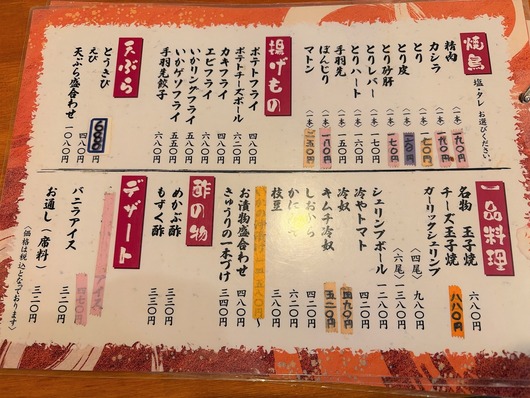 焼鳥
塩・タレ お選びください。
精肉 〈一本〉一九〇円
カシラ 〈一本〉一九〇円
とり 〈一本〉一七〇円
とり皮 〈一本〉
とり砂肝 〈一本〉一七〇円
とりレバー 〈一本〉一六〇円
とりハート 〈一本〉一六〇円
手羽先 〈一本〉
ぼんじり 〈一本〉一八〇円
マトン 〈一本〉
揚げもの
ポテトフライ 四八〇円
ポテトチーズボール 六二〇円
カキフライ 四八〇円
エビフライ 六八〇円
いかリングフライ 五五〇円
いかゲソフライ 五五〇円
手羽先餃子 六八〇円
天ぷら
とうきび
えび
天ぷら盛合わせ 一〇八〇円
一品料理
名物 玉子焼 六八〇円
チーズ玉子焼 八八〇円
ガーリックシュリンプ
〈四尾〉 九八〇円
〈六尾〉一三八〇円
シュリンプボール 一二八〇円
冷やトマト 四二〇円
冷奴
キムチ冷奴
しおから 四二〇円
かに 六二〇円
枝豆 三八〇円
お漬物盛合わせ 四八〇円
きゅうりの一本づけ 三四〇円
酢の物
めかぶ酢 三三〇円
もずく酢 三三〇円
デザート
アイス
バニラアイス 三二〇円
お通し（席料） 三二〇円
（価格は税込となっております）